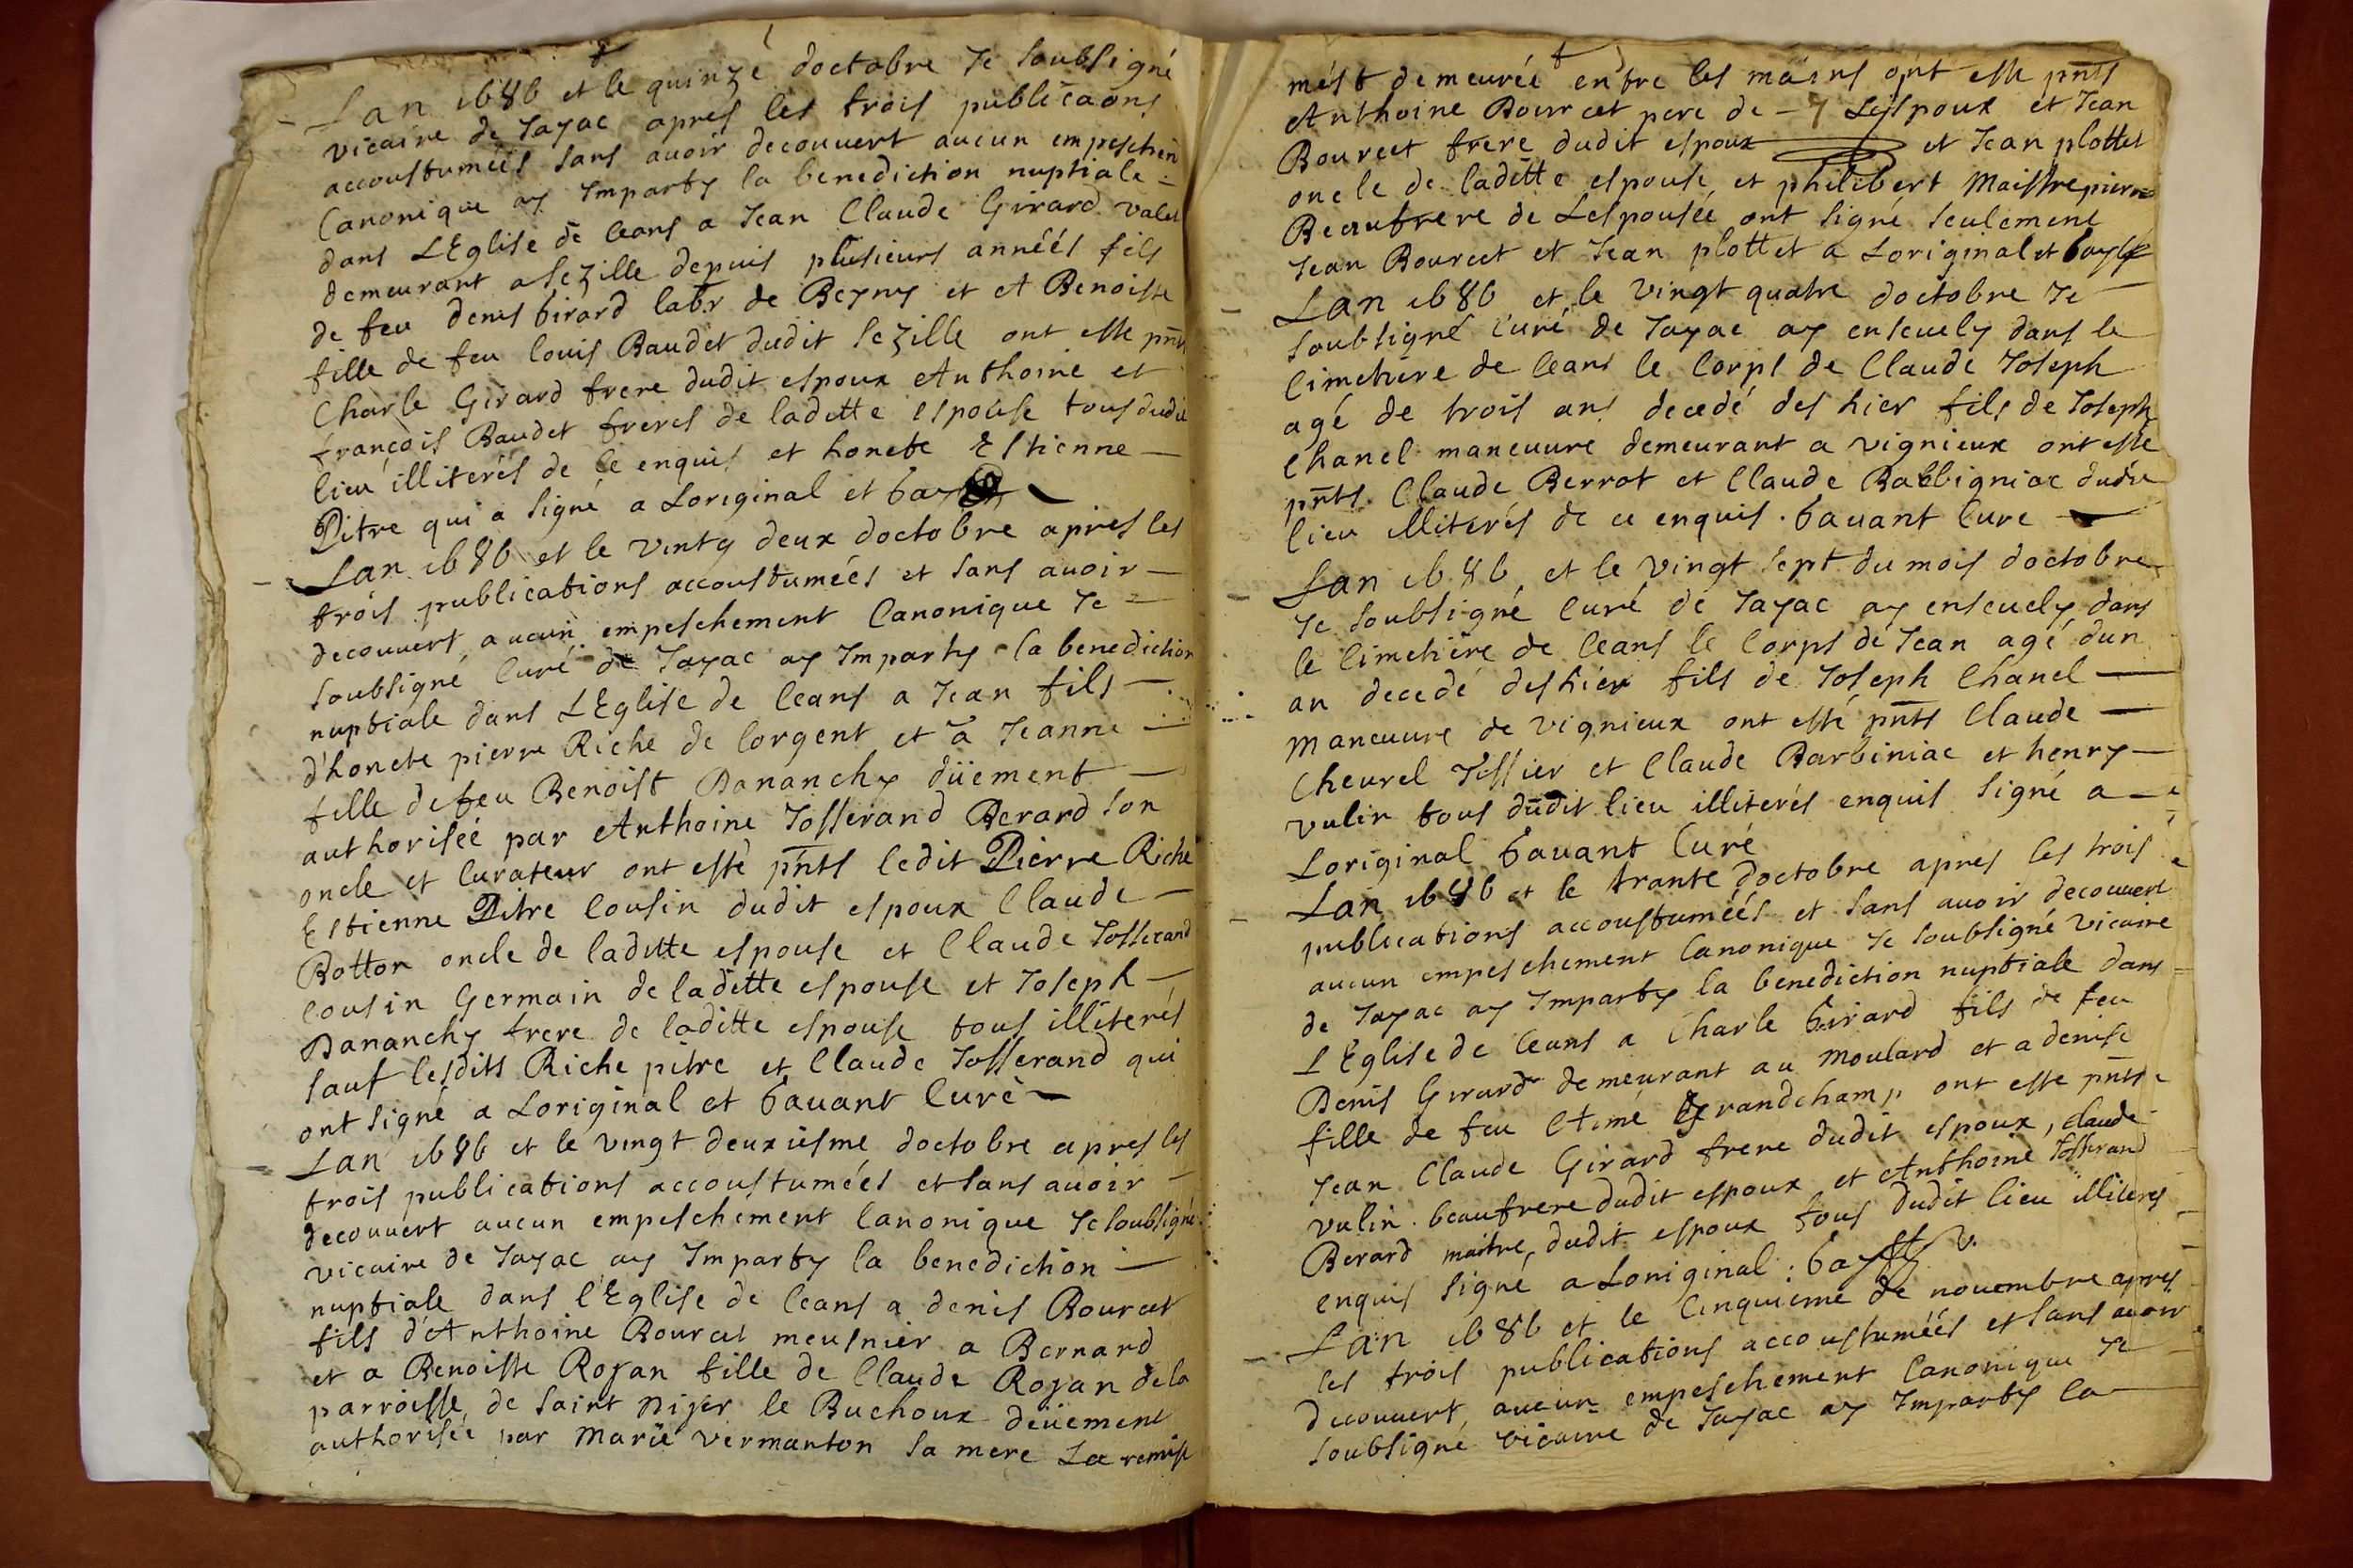 Lan 1686 et le quinze doctobre Je soubsigné
vicaire de Jayac apres les trois publicaons
accoustumées sans avoir decouuert aucun empeschen
Canonique ay Imparty la benediction nuptiale
dans LEglise de ceans a Jean Claude Girard valet
demeurant a sezille depuis plusieurs années fils
de feu denis Girard labr de Beyny et A Benoiste
fille de feu louis Baudet dudit sezille ont esté pnts
Charle Girard frere dudit espoux Anthoine et
françois Baudet freres de laditte espouse tous dudit
lieu illiterés de ce enquis et honete Estienne
Pitre qui a signé a Loriginal et
Lan 1686 et le vintg deux doctobre apres les
trois publications accoustumées et sans auoir
decouuert aucun empeschement Canonique Je
soubsigné Curé de Jayac ay Imparty la benediction
nuptiale dans LEglise de ceans a Jean fils
d'honete pierre Riche de Corgent et a Jeanne
fille de feu Benoist Dananchy düement
authorisée par Anthoine Josserand Berard son
oncle et Curateur ont esté pnts ledit Pierre Riche
Estienne Pitre Cousin dudit espoux Claude
Botton oncle de laditte espouse et Claude Josserand
Cousin Germain de laditte espouse et Joseph
Dananchy frere de laditte espouse tous illiterés
sauf lesdits Riche pitre et Claude Josserand qui
ont signé a Loriginal et Gauant Curé
Lan 1686 et le vingt deuxiesme doctobre apres les
trois publications accoustumées et sans auoir
decouuert aucun empeschement Canonique Je soubsigné
vicaire de Jayac ay Imparty la benediction
nuptiale dans l'Eglise de ceans a denis Bourcet
fils d'Anthoine Bourcet meusnier a Bernard
et a Benoiste Royan fille de Claude Royan de la
parroisse de saint Nizier le Buchoux deüement
authorisée par Marie vermanton sa mere La remise
mést demeurée entre les mains ont esté pnts
Anthoine Bourcet pere de Lespoux et Jean
Bourcet frere dudit espoux et Jean plottet
oncle de laditte espouse et philibert Maistrepierre
Beaufrere de Lespousée ont signé seulement
Jean Bourcet et Jean plottet a Loriginal et
Lan 1686 et le vingt quatre doctobre Je
soubsigné Curé de Jayac ay enseuely dans le
Cimetiere de ceans le Corps de Claude Joseph
agé de trois ans decedé des hier fils de Joseph
Chanel maneuure demeurant a vignieux ont esté
pnts Claude Berrot et Claude Barbigniac dudit
lieu illiterés de ce enquis. Gauant Cure
Lan 1686 et le vingt sept du mois doctobre
Je soubsigné Curé de Jayac ay enseuely dans
le Cimetiere de ceans le Corps de Jean agé dun
an decedé des hier fils de Joseph Chanel
Maneuure de vignieux ont esté pnts Claude
Cheurel Tissier et Claude Barbiniac et henry
vulin tous dudit lieu illiterés enquis signé a
Loriginal Gauant Curé
Lan 1686 et le trante doctobre apres les trois
publications accoustumées et sans auoir decouuert
aucun empeschement Canonique Je soubsigné vicaire
de Jayac ay Imparty la benediction nuptiale dans
LEglise de ceans a Charle Girard fils de feu
Denis Girard demeurant au Moulard et a denise
fille de feu Aimé Grandchamp ont esté pnts
Jean Claude Girard frere dudit espoux, Claude
vulin beaufrere dudit espoux et Anthoine Josserand
Berard maitre dudit espoux tous dudit lieu illiterés
enquis signé a Loriginal: v.
Lan 1686 et le Cinquieme de nouembre apres
les trois publications accoustumées et sans auoir
decouuert aucun empeschement Canonique Je
soubsigné vicaire de Jayac ay Imparty la